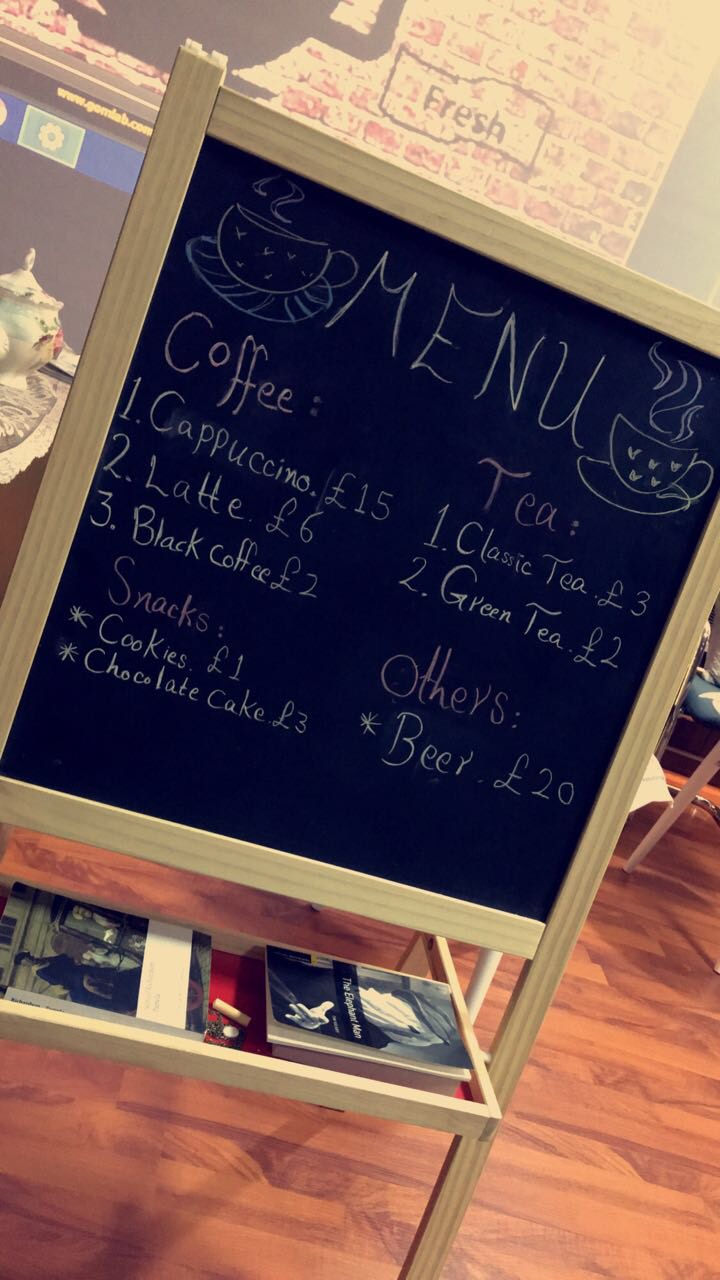 www.gomlab.com
Fresh
MENU
Coffee:
1. Cappuccino. £15
2. Latte. £6
3. Black coffee £2
Snacks:
* Cookies. £1
* Chocolate cake. £3
Tea:
1. Classic Tea. £3
2. Green Tea. £2
Others:
* Beer. £20
The Elephant Man